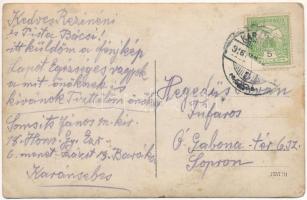 Kedves Rezsnéni
és Pista Bácsi!
itt küldöm a fénykép
lapot Egésséges vagyok
a mit önöknek is
kivánok Tisztelem önöket
Somsits János m. kir.
18. Honv. Gy. Ezr.
6. menet század 13. Barakk
Karánsebes
Hegedüs
Fúfáros
Ó Gabona-tér 6 sz.
Sopron
5